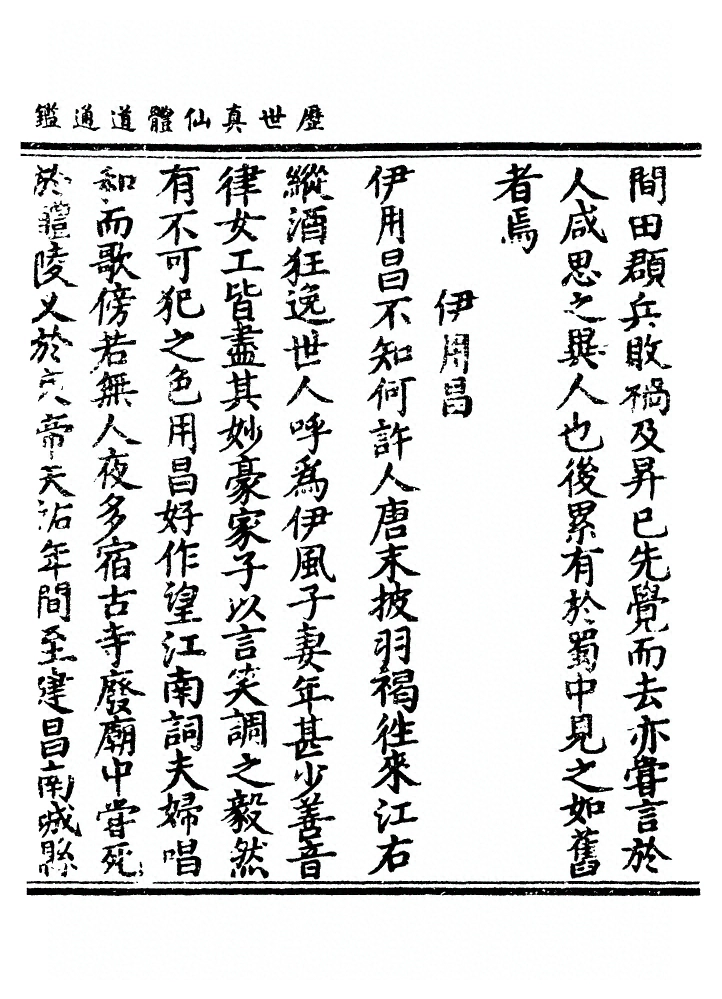 歷世真仙體道通鑑
間田頵兵敗禍及昇已先覺而去亦嘗言於
人咸思之異人也後累有於蜀中見之如舊
者焉
伊用昌
伊用昌不知何許人唐末披羽褐徃來江右
縱酒狂逸世人呼爲伊風子妻年甚少善音
律女工皆盡其妙豪家子以言笑調之毅然
有不可犯之色用昌好作望江南詞夫婦唱
和而歌傍若無人夜多宿古寺廢廟中嘗死
於醴陵又於哀帝天祐年間至建昌南城縣